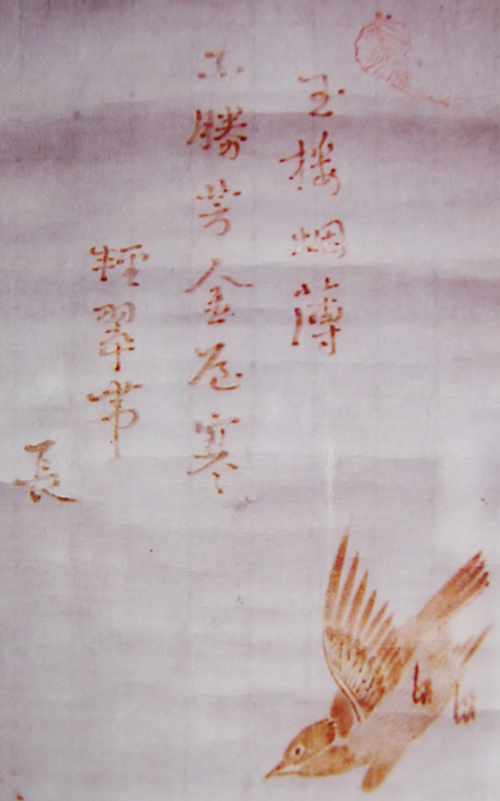 玉樓烟薄
不勝芳金屋寒
輕翠帶
長